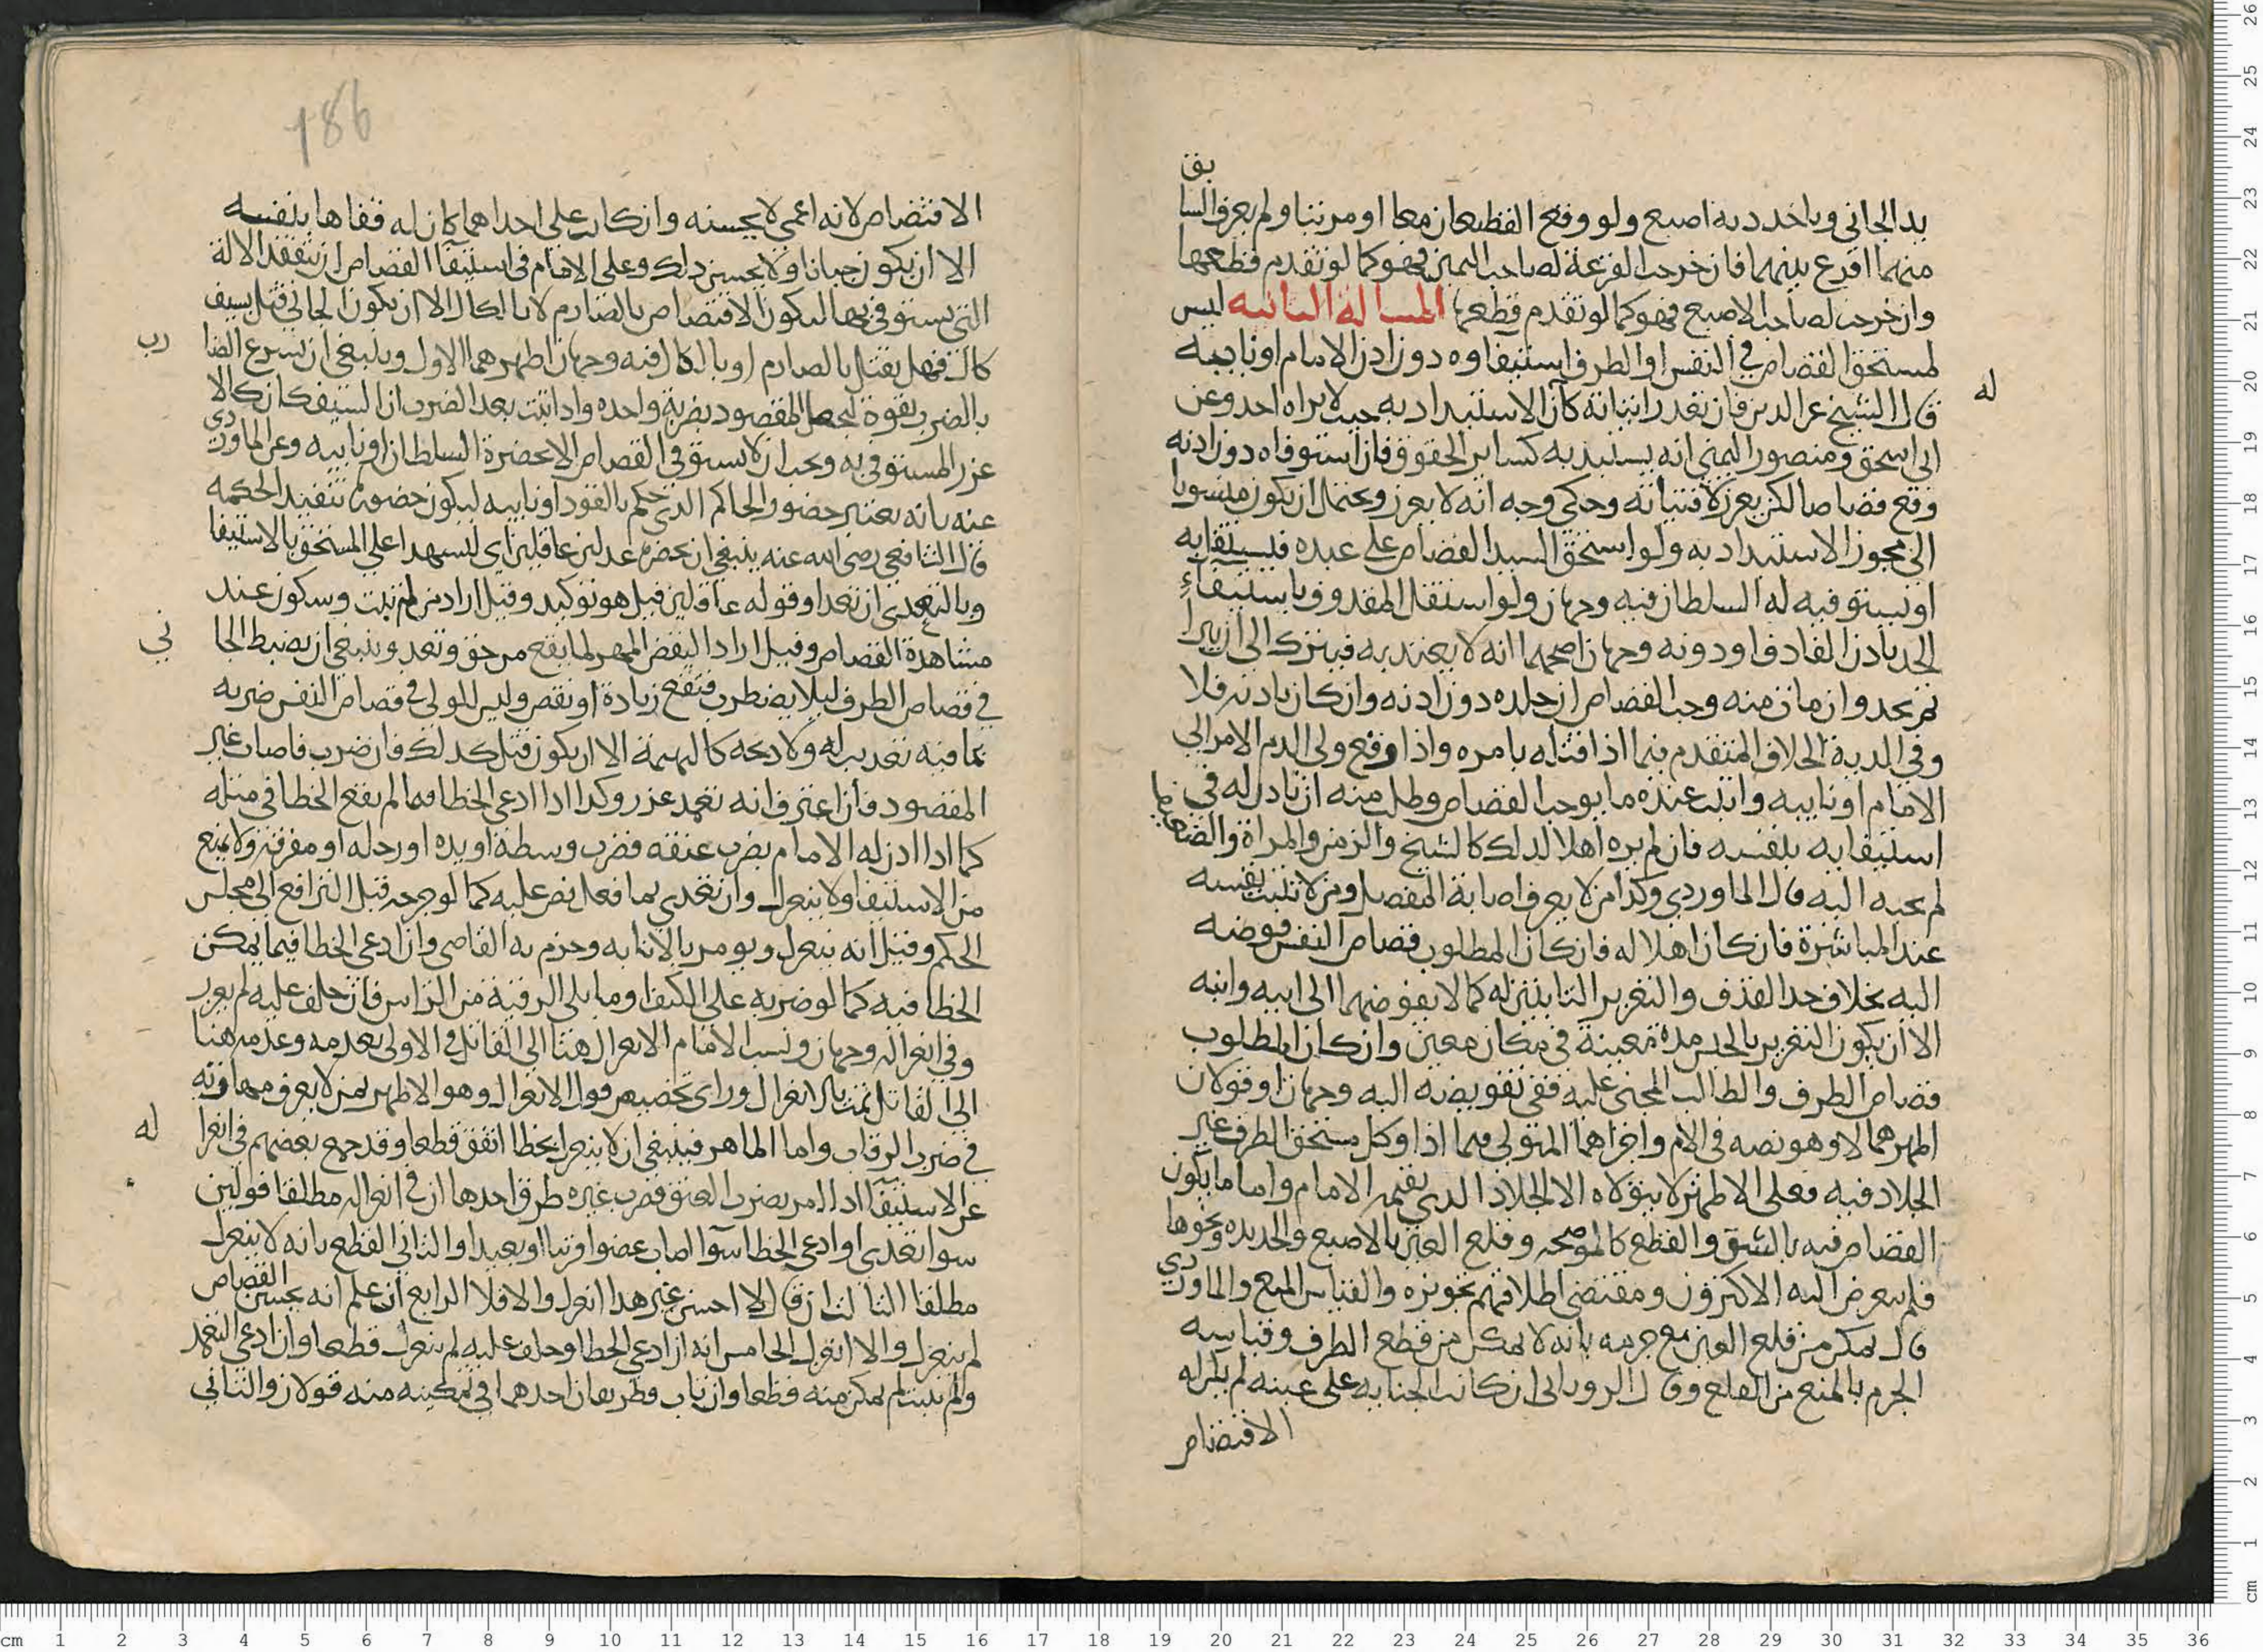 يد الجاني وياخد دية اصبع ولو وقع القطعان معا او مرتبا ولم يعرف السابق
منهما اقرع بينهما فان خرجت القرعة لصاحب اليمين فهو كما لو تقدم قطعها
وان خرجت لصاحب الاصبع فهو كما لو تقدم قطعها المسالة الثانيه ليس
لمستحق القصاص في النفس او الطرف استيفاوه دون اذن الامام او نايبه
قال الشيخ عز الدين فان تعذر اثباته كان الاستبداد به حيث لا يراه احد وعن
ابي اسحق ومنصور اليمني انه يستبد به كساير الحقوق فان استوفاه دون اذنه
وقع قصاصا لكن يعزر لافتياته وحكي وجه انه لا يعزر ويحتمل ان يكون منسوبا
الى مجوز الاستبداد به ولو استحق السيد القصاص على عبده فليستيفايه
او يستوفيه له السلطان فيه وجهان ولو استقل المقدوف باستيفاء
الحد باذن القادف او دونه وجهان اصحهما انه لا يعتد به فيترك الى ان يبرا
ثم يحد وان مات منه وجب القصاص ان جلده دون اذنه وان كان باذنه فلا
وفي الدية الخلاف المتقدم فيما اذا قتله بامره واذا رفع ولي الدم الامر الى
الامام او نايبه واثبت عنده ما يوجب القصاص وطلب منه ان ياذن له في
استيفايه بنفسه فان لم يره اهلا لذلك كالشيخ والزمن والمراة والضعيف
لم يجبه اليه قال الماوردي وكذا من لا يعرف اصابة المفصل ومن لا تثبت نفسه
عند المباشرة فان كان اهلا له فان كان المطلوب قصاص النفس فوضه
اليه بخلاف حد القذف والتعزير الثابتين له كما لا يفوضهما الى ابيه وابنه
الا ان يكون التعزير بالحبس مدة معينة في مكان معين وان كان المطلوب
قصاص الطرف والطالب المجني عليه ففي تفويضه اليه وجهان او قولان
اظهرهما لا وهو نصه في الام واجراهما المتولي فيما اذا وكل مستحق الطرف غير
الجلاد فيه فعلى الاظهر لا يتولاه الا الجلاد الدي يقيمه الامام واما ما يكون
القصاص فيه بالشق والقطع كالموضحه وقلع العين بالاصبع والحديده ونحوها
فلم يتعرض اليه الاكثرون ومقتضى اطلاقهم تجويزه والقياس المنع والماوردي
قال يمكن من قلع العين مع جزمه بانه لا يمكن من قطع الطرف وقياسه
الجزم بالمنع من القلع وقال الروياني ان كانت الجناية على عينه لم يكن له
الاقتصاص
الاقتصاص لانه اعمى لا يحسنه وان كان على احداهما كان له قفاها بنفسه
الا ان يكون جبانا او لا يحسن ذلك وعلى الامام في استيفا القصاص ان يتفقد الالة
التي يستوفي بها ليكون الاقتصاص بالصارم لا بالكال الا ان يكون الجاني قتل بسيف
كال فهل يقتل بالصارم او بالكال فيه وجهان اظهرهما الاول وينبغي ان يسرع الضارب
بالضرب بقوة ليحصل المقصود بضربة واحده واذا ثبت بعد الضرب ان السيف كان كالا
عزر المستوفي به ويجب ان لا يستوفى القصاص الا بحضرة السلطان او نايبه وعن الماوردي
عنه بانه يعتبر حضور الحاكم الذي حكم بالقود او نايبه ليكون حضوره تنفيذ الحكمه
قال الشافعي رضي الله عنه ينبغي ان يحضره عدلين عاقلين اي ليشهدا على المستحق بالاستيفا
وبالتعدي ان تعدا وقوله عاقلين قيل هو توكيد وقيل اراد من لهم تثبت وسكون عند
مشاهدة القصاص وقيل اراد اليقظ المميز لما يقع من حق وتعد وينبغي ان يضبط الجاني
في قصاص الطرف ليلا يضطرب فتقع زيادة او نقص وليس للولي في قصاص النفس ضربه
بما فيه تعذيب له ولا دبحه كالبهيمة الا ان يكون قتل كذلك فان ضرب فاصاب غير
المقصود فان اعترف انه تعمد عزر وكذا اذا ادعى الخطا فيما لم يقع الخطا في مثله
كما اذا اذن له الامام بضرب عنقه فضرب وسطه او يده او رجله او مفرقه ولا يمنع
من الاستيفا ولا ينعزل وان تعدى بما فعل نص عليه كما لو جرحه قبل الترافع الى مجلس
الحكم وقيل انه ينعزل ويومر بالانابه وجزم به القاضي وان ادعى الخطا فيما يمكن
الخطا فيه كما لو ضربه على الكتف او ما يلي الرقبة من الراس فان حلف عليه لم يعزر
وفي انعزاله وجهان ونسب الامام الانعزال هنا الى القاتل في الاولى بعدمه وعدمه هنا
الى القاتل ثمت بالانعزال وراى تخصيص قول الانعزال وهو الاظهر بمن لا يعرف مهارته
في ضرب الرقاب واما الماهر فينبغي ان لا ينعزل بخطا اتفق قطعا وقد جمع بعضهم في انعزاله
عن الاستيفا اذا امر بضرب العنق فضرب غيره طرق احدها ان في انعزاله مطلقا قولين
سوا تعدى او ادعى الخطا سوا اصاب عضوا قريبا او بعيدا والثاني القطع بانه لا ينعزل
مطلقا الثالث ان قال لا احسن غير هذا انعزل والا فلا الرابع ان علم انه يحسن القصاص
لم ينعزل والا انعزل الخامس انه ان ادعى الخطا وحلف عليه لم ينعزل قطعا وان ادعى التعمد
ولم يتب لم يمكن منه قطعا وان تاب فطريقان احدهما في تمكينه منه قولان والثاني
186